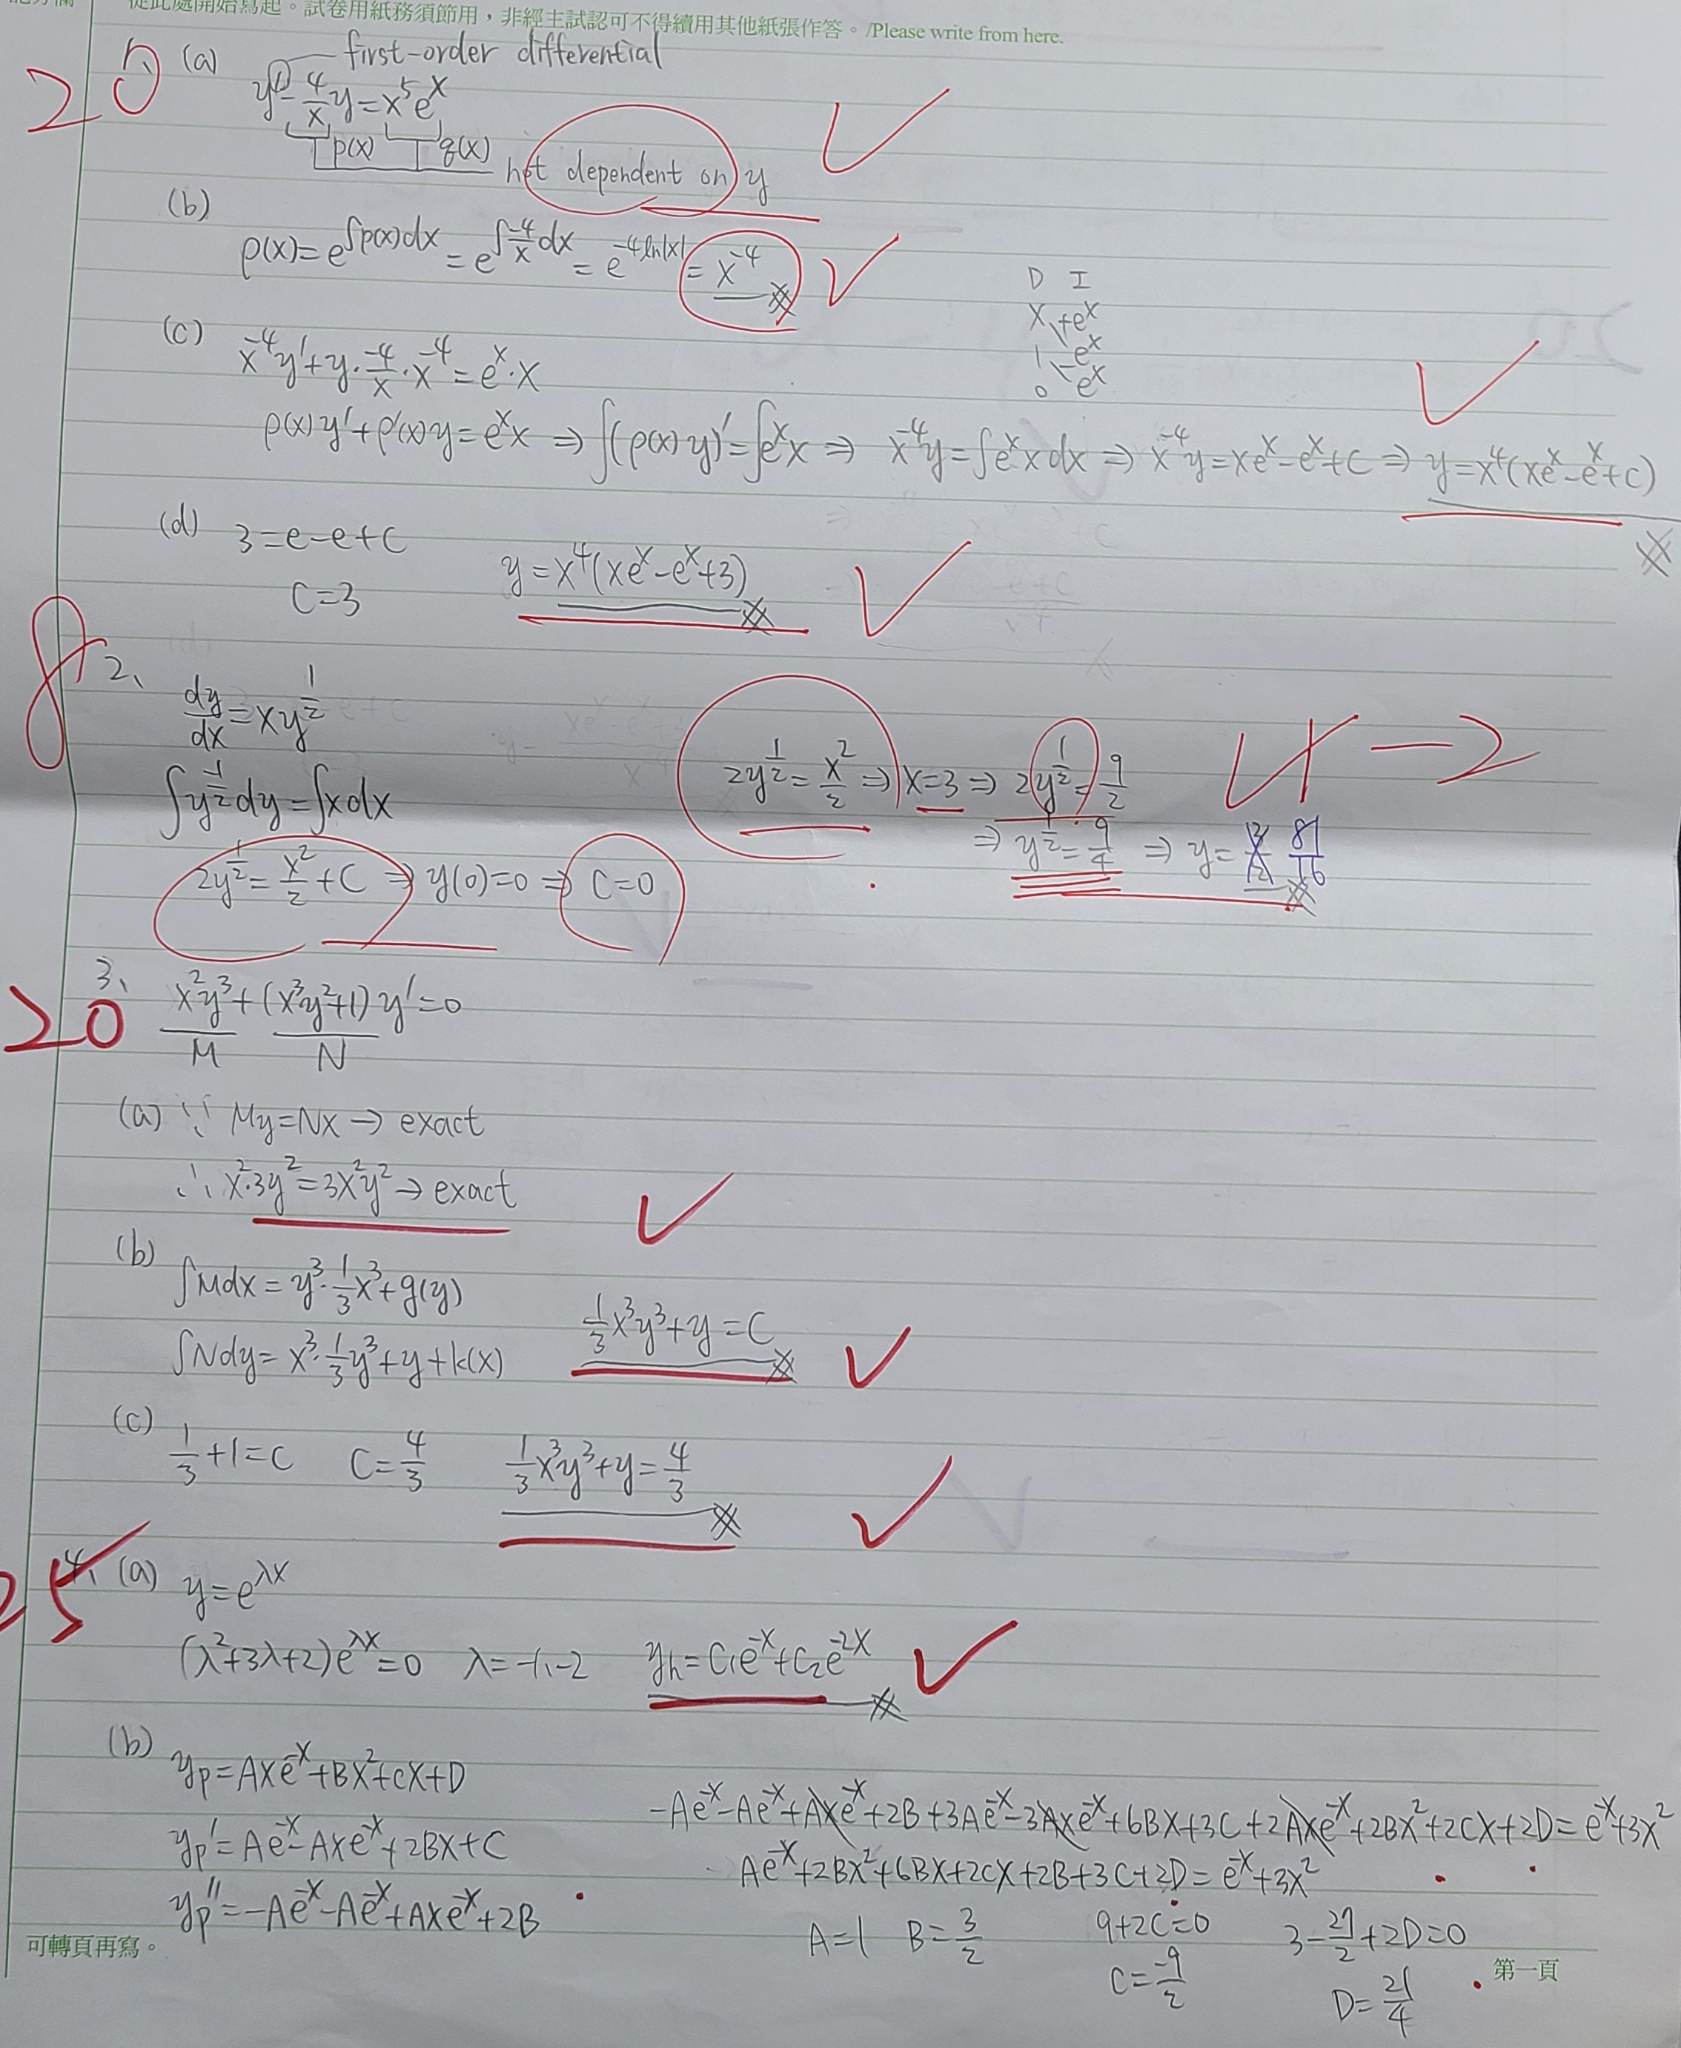 從此處開始寫起。試卷用紙務須節用，非經主試認可不得續用其他紙張作答。/Please write from here.
20
1、(a) first-order differential
y' - 4/x y = x^5 e^x
p(x) q(x) not dependent on y
(b)
ρ(x) = e^∫p(x)dx = e^∫-4/x dx = e^-4ln|x| = x^-4
D I
x + e^x
1 - e^x
0 e^x
(c) x^-4 y' + y · -4/x · x^-4 = e^x · x
ρ(x)y' + ρ'(x)y = e^x x ⇒ ∫(ρ(x)y)' = ∫e^x x ⇒ x^-4 y = ∫e^x x dx ⇒ x^-4 y = xe^x - e^x + C ⇒ y = x^4(xe^x - e^x + C)
(d) 3 = e - e + C
C = 3 y = x^4(xe^x - e^x + 3)
8
2、
dy/dx = xy^1/2
∫y^-1/2 dy = ∫x dx
2y^1/2 = x^2/2 + C ⇒ y(0) = 0 ⇒ C = 0
2y^1/2 = x^2/2 ⇒ x = 3 ⇒ 2y^1/2 = 9/2
⇒ y^1/2 = 9/4 ⇒ y = 81/16
-2
20
3、
x^2y^3 + (x^3y^2+1)y' = 0
M N
(a) ∵ My = Nx → exact
∴ x^2·3y^2 = 3x^2y^2 → exact
(b)
∫Mdx = y^3 · 1/3 x^3 + g(y)
∫Ndy = x^3 · 1/3 y^3 + y + k(x) 1/3 x^3y^3 + y = C
(c)
1/3 + 1 = C C = 4/3 1/3 x^3y^3 + y = 4/3
25
4、(a) y = e^λx
(λ^2+3λ+2)e^λx = 0 λ = -1、-2 yh = C1e^-x + C2e^-2x
(b)
yp = Axe^-x + Bx^2 + Cx + D
yp' = Ae^-x - Axe^-x + 2Bx + C
yp'' = -Ae^-x - Ae^-x + Axe^-x + 2B
-Ae^-x - Ae^-x + Axe^-x + 2B + 3Ae^-x - 3Axe^-x + 6Bx + 3C + 2Axe^-x + 2Bx^2 + 2Cx + 2D = e^-x + 3x^2
Ae^-x + 2Bx^2 + 6Bx + 2Cx + 2B + 3C + 2D = e^-x + 3x^2
A = 1 B = 3/2 9 + 2C = 0 3 - 27/2 + 2D = 0
C = -9/2 D = 21/4
可轉頁再寫。
第一頁